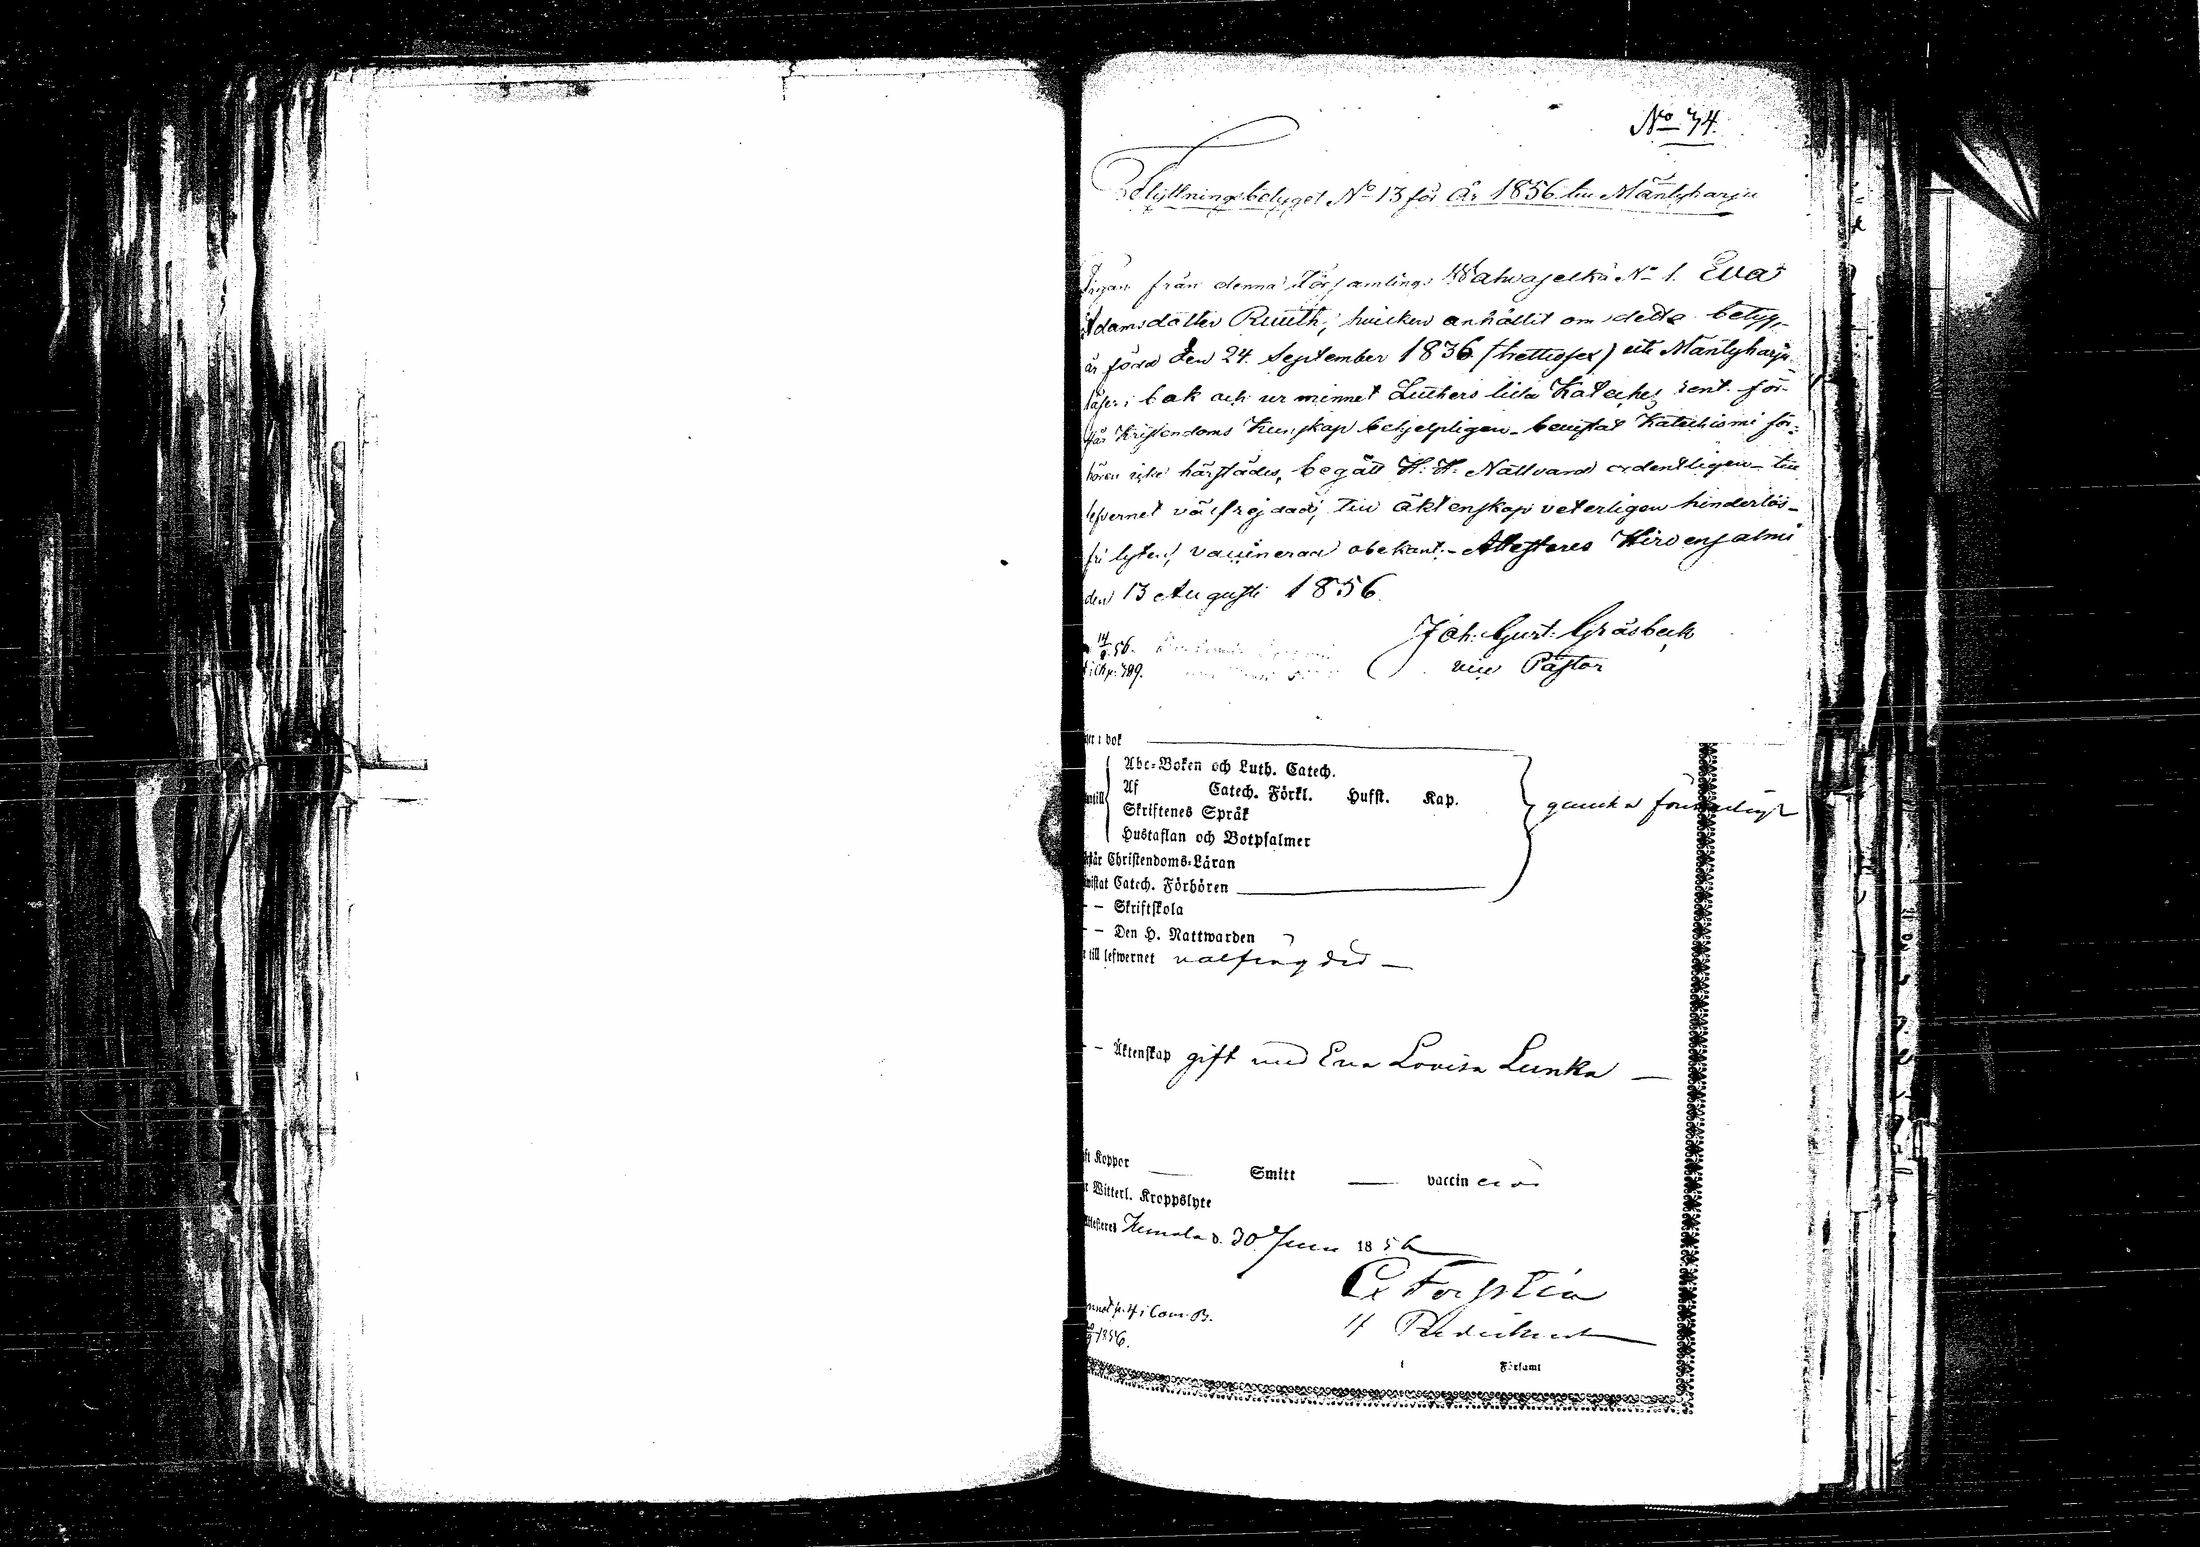 No 74.
Flyttningsbetyget No 13 för År 1856 till Mäntyharju
Pigan från denna Församlings Wahvaselkä No 1. Eva
Adamsdotter Ruuth, hvilken anhållit om detta betyg,
är född den 24. September 1836 (trettiosex) uti Mäntyharju
läser i bok och ur minnet Luthers lilla Kateches rent. för-
står Kristendoms Kunskap behjelpligen - bevistat Katechismi för-
hören icke härstädes, begått H. H. Nattvard ordentligen - till
lefvernet välfrejdad, till äktenskap veterligen hinderlös -
fri lyten, vaccinerad obekant. - Attesteres Hirvensalmi
den 13 Augusti 1856.
14/8 56.
Joh. Gust. Gråsbeck
p. 389.
vice Pastor
i bok
Abc-Boken och Luth. Catech.
Af Catech. Förkl. Husst. Kap.
ganska
Skriftenes Språk
Hustaflan och Botpsalmer
Christendoms-Läran
Catech. Förhören
— Skriftskola
— Den H. Nattwarden
till lefwernet välfrägdad —
— Äktenskap gift med Eva Lovisa Lunka —
Koppor — Smitt — vaccinerad
Witterl. Kroppslyte
Attesteres d. 30 Juni 1856
C Forstén
p. 4 i Com. B.
1856.
Församl